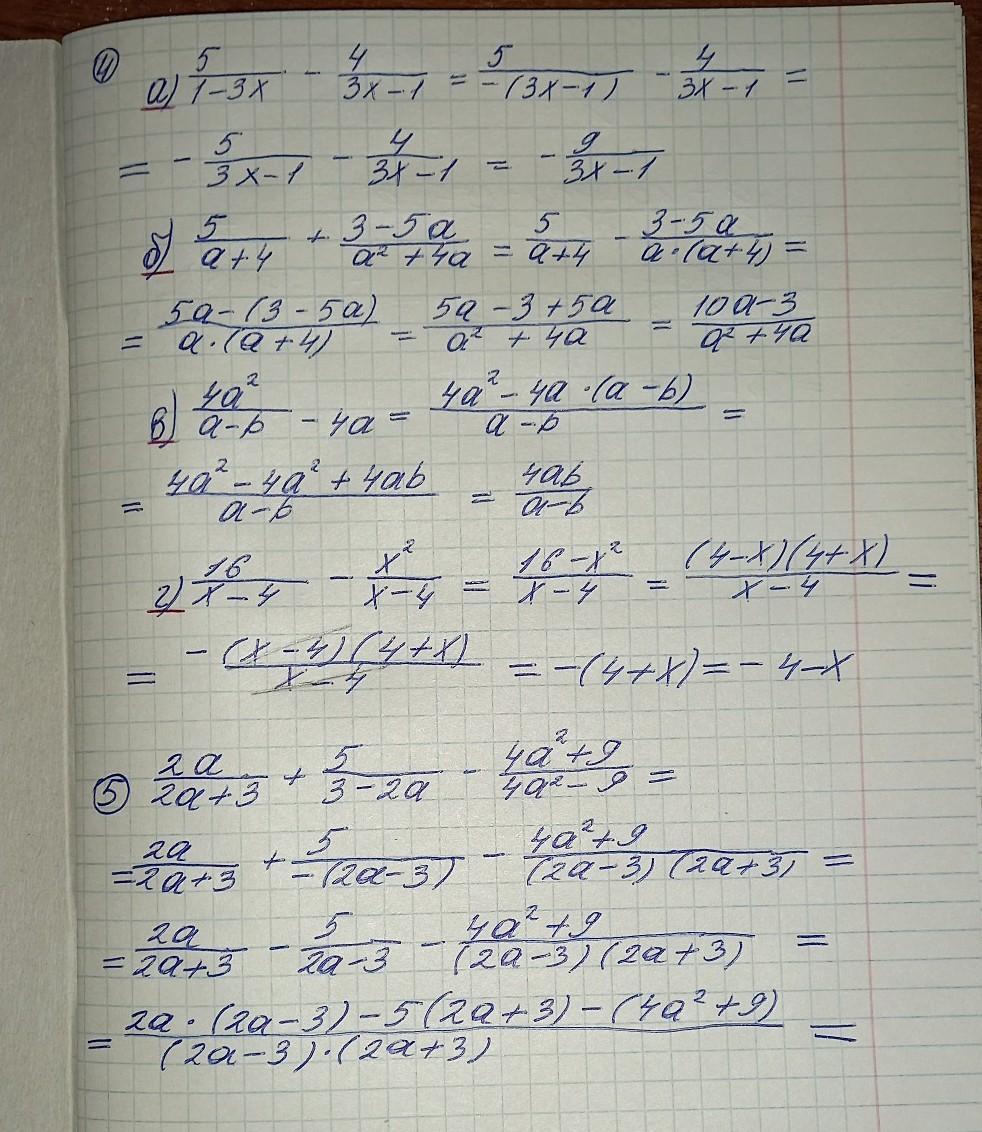 ④ а) 5/(1-3x) - 4/(3x-1) = 5/(-(3x-1)) - 4/(3x-1) =
= - 5/(3x-1) - 4/(3x-1) = - 9/(3x-1)
б) 5/(a+4) + (3-5a)/(a²+4a) = 5/(a+4) - (3-5a)/(a·(a+4)) =
= (5a-(3-5a))/(a·(a+4)) = (5a-3+5a)/(a²+4a) = (10a-3)/(a²+4a)
в) 4a²/(a-b) - 4a = (4a²-4a·(a-b))/(a-b) =
= (4a²-4a²+4ab)/(a-b) = 4ab/(a-b)
г) 16/(x-4) - x²/(x-4) = (16-x²)/(x-4) = ((4-x)(4+x))/(x-4) =
= (-(x-4)(4+x))/(x-4) = -(4+x) = -4-x
⑤ 2a/(2a+3) + 5/(3-2a) - (4a²+9)/(4a²-9) =
= 2a/(2a+3) + 5/(-(2a-3)) - (4a²+9)/((2a-3)(2a+3)) =
= 2a/(2a+3) - 5/(2a-3) - (4a²+9)/((2a-3)(2a+3)) =
= (2a·(2a-3)-5(2a+3)-(4a²+9))/((2a-3)·(2a+3)) =